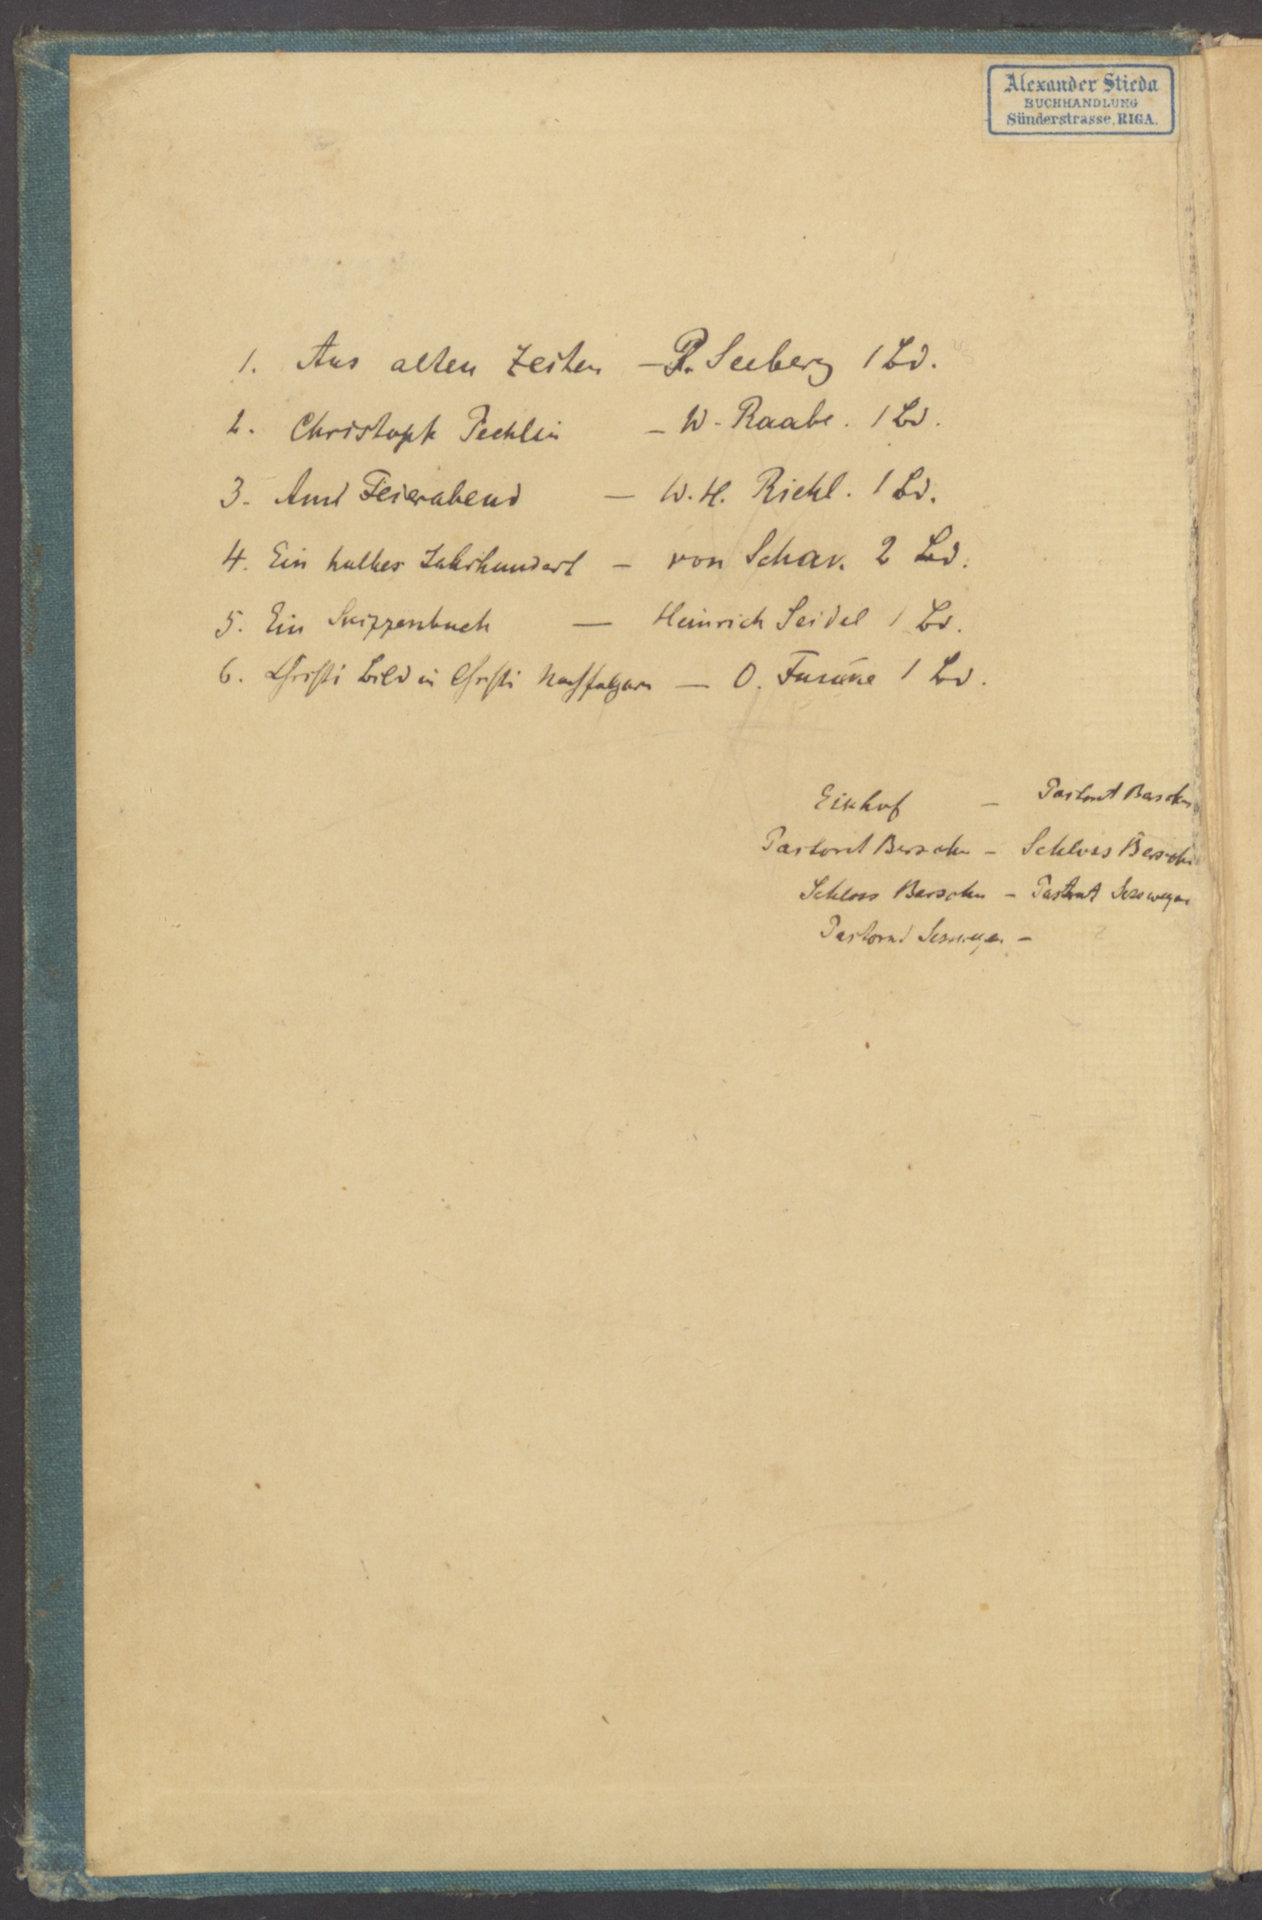 Alexander Stieda
BUCHHANDLUNG
Sünderstrasse, RIGA.
1. Aus alten Zeiten – P. Seeberg 1 Bd.
2. Christoph Pechlin – W. Raabe. 1 Bd.
3. Am Feierabend – W. H. Riehl. 1 Bd.
4. Ein halbes Jahrhundert – von Schack. 2 Bd.
5. Ein Skizzenbuch – Heinrich Seidel 1 Bd.
6. Christi Bild in Christi Nachfolgern – O. Funcke 1 Bd.
Eikhof – Pastorat Bersohn
Pastorat Bersohn – Schloss Bersohn
Schloss Bersohn – Pastorat Sesswegen
Pastorat Sesswegen –